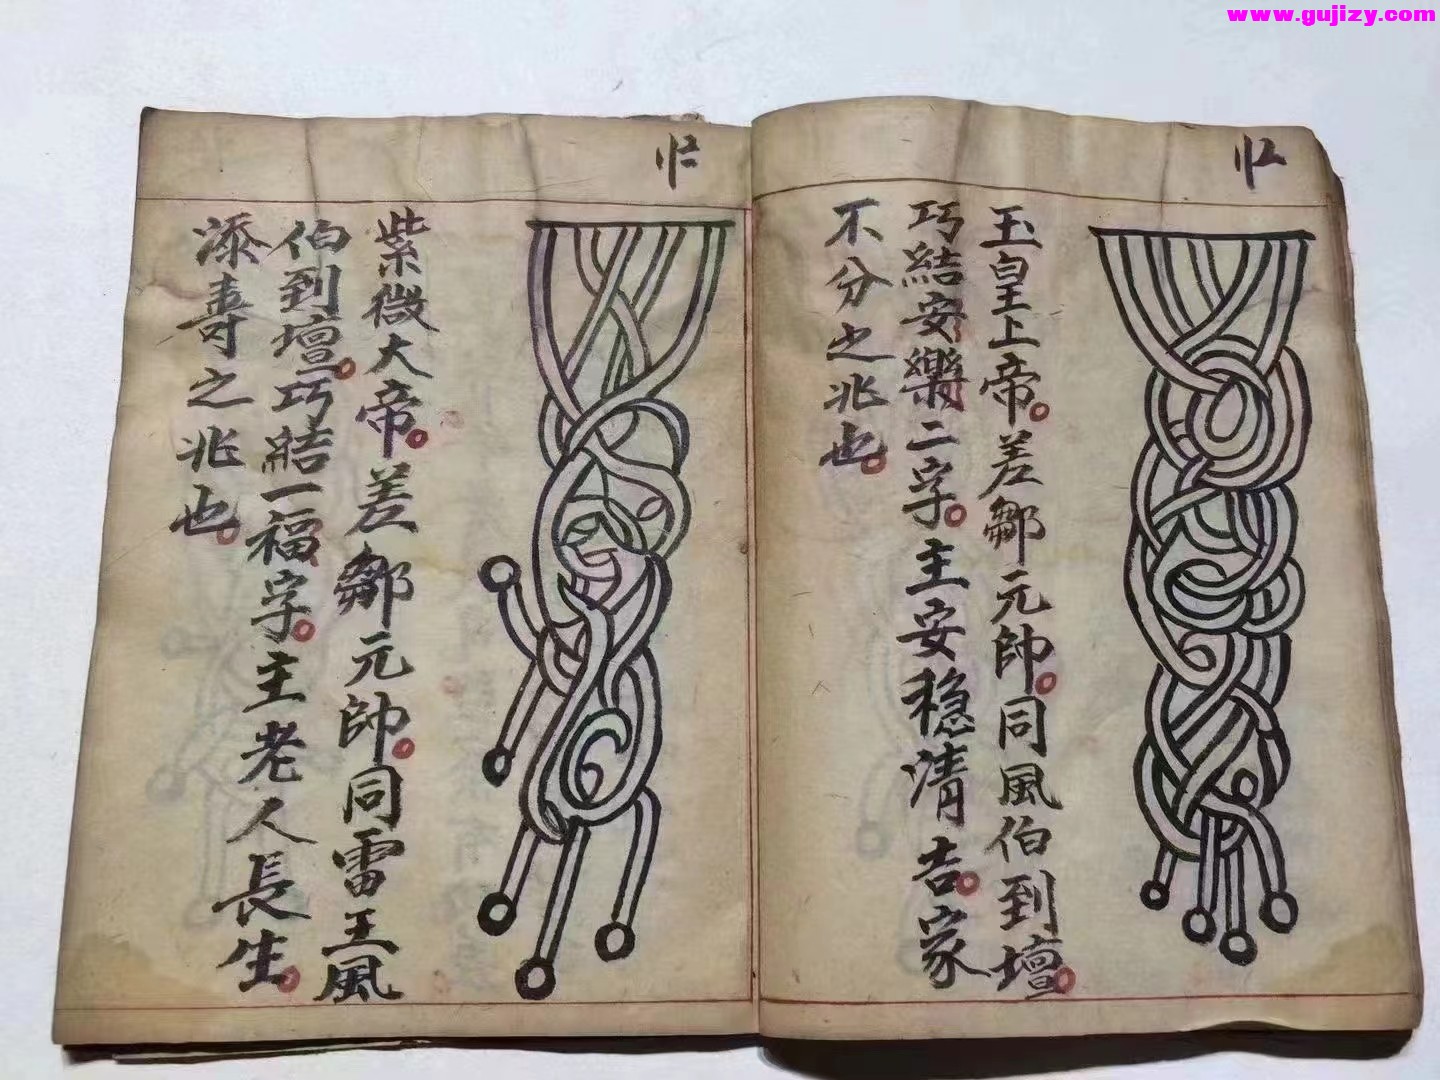 www.gujizy.com
玉皇上帝。差鄒元帥。同風伯到壇。
巧結安樂二字。主安穏清吉。家
不分之兆也。
紫微大帝。差鄒元帥。同雷王風
伯到壇。巧結一福字。主老人長生。
添壽之兆也。